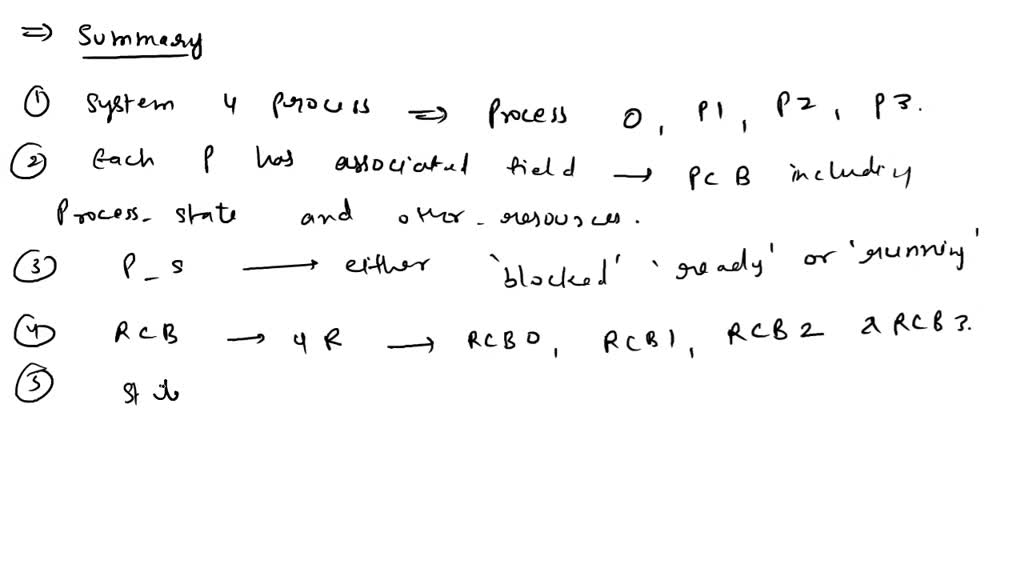 ⇒ Summary
① System 4 process ⇒ Process 0, P1, P2, P3.
② Each P has associated field → PCB including
Process_state and other_resources.
③ P_s → either 'blocked' 'ready' or 'running'
④ RCB → 4R → RCB0, RCB1, RCB2 & RCB3.
⑤